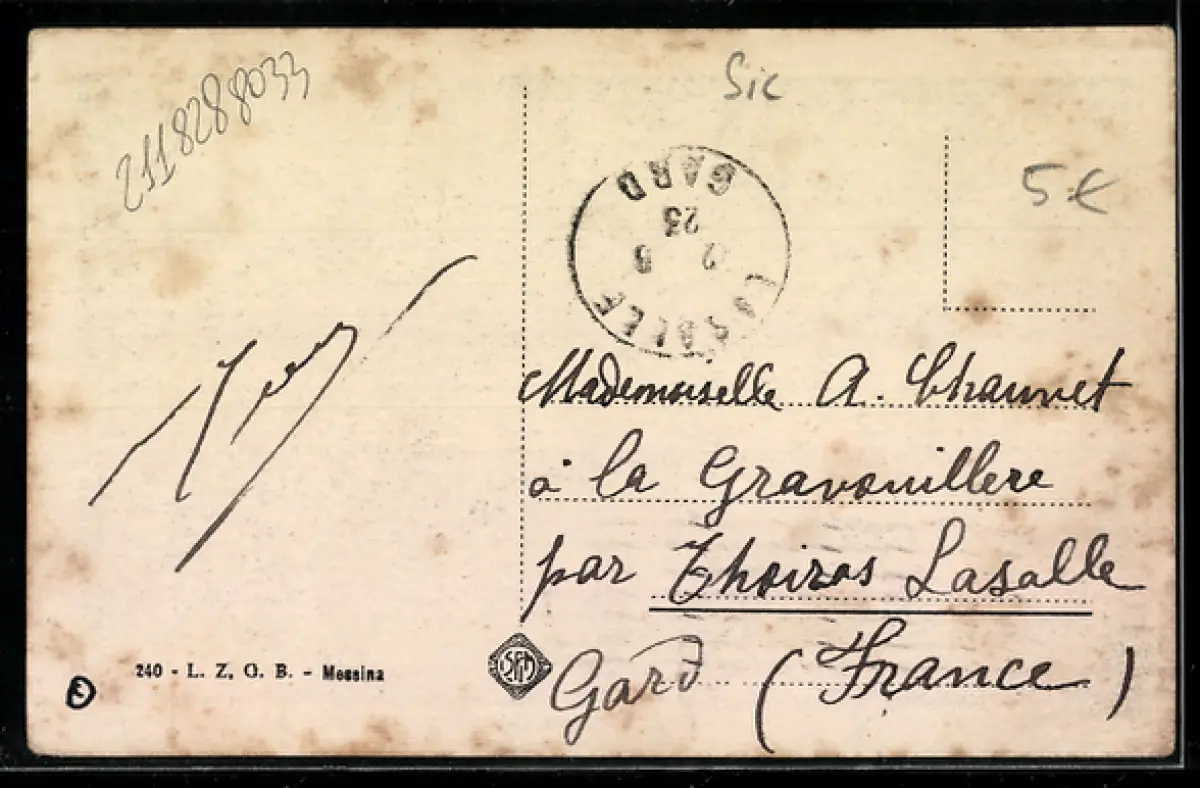 2118288033
Sic
5€
GARD
23
2 6
LASALLE
Mademoiselle A. Chauvet
à la Gravouillere
par Thoiras Lasalle
Gard (France)
240 - L. Z. O. B. - Messina